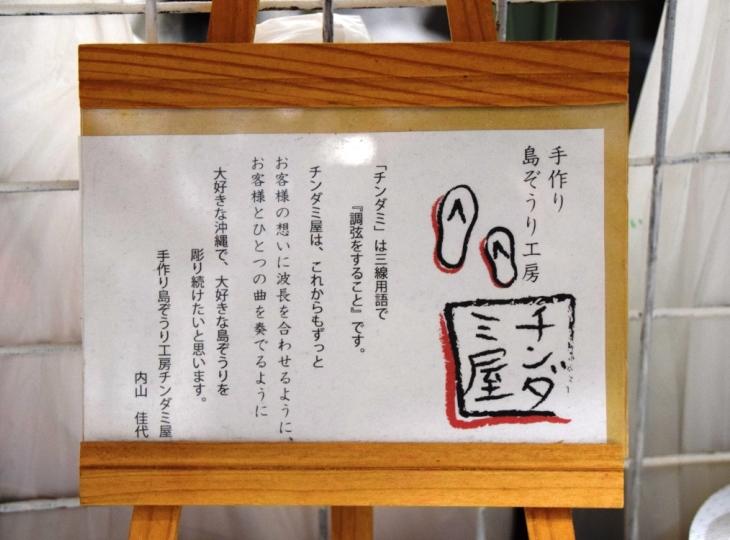 手作り
島ぞうり工房
チンダ
ミ屋
「チンダミ」は三線用語で
『調弦をすること』です。
チンダミ屋は、これからもずっと
お客様の想いに波長を合わせるように、
お客様とひとつの曲を奏でるように
大好きな沖縄で、大好きな島ぞうりを
彫り続けたいと思います。
手作り島ぞうり工房チンダミ屋
内山 佳代